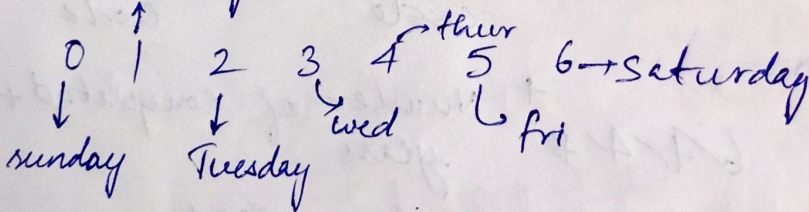 thur
0 1 2 3 4 5 6→saturday
wed
fri
sunday Tuesday